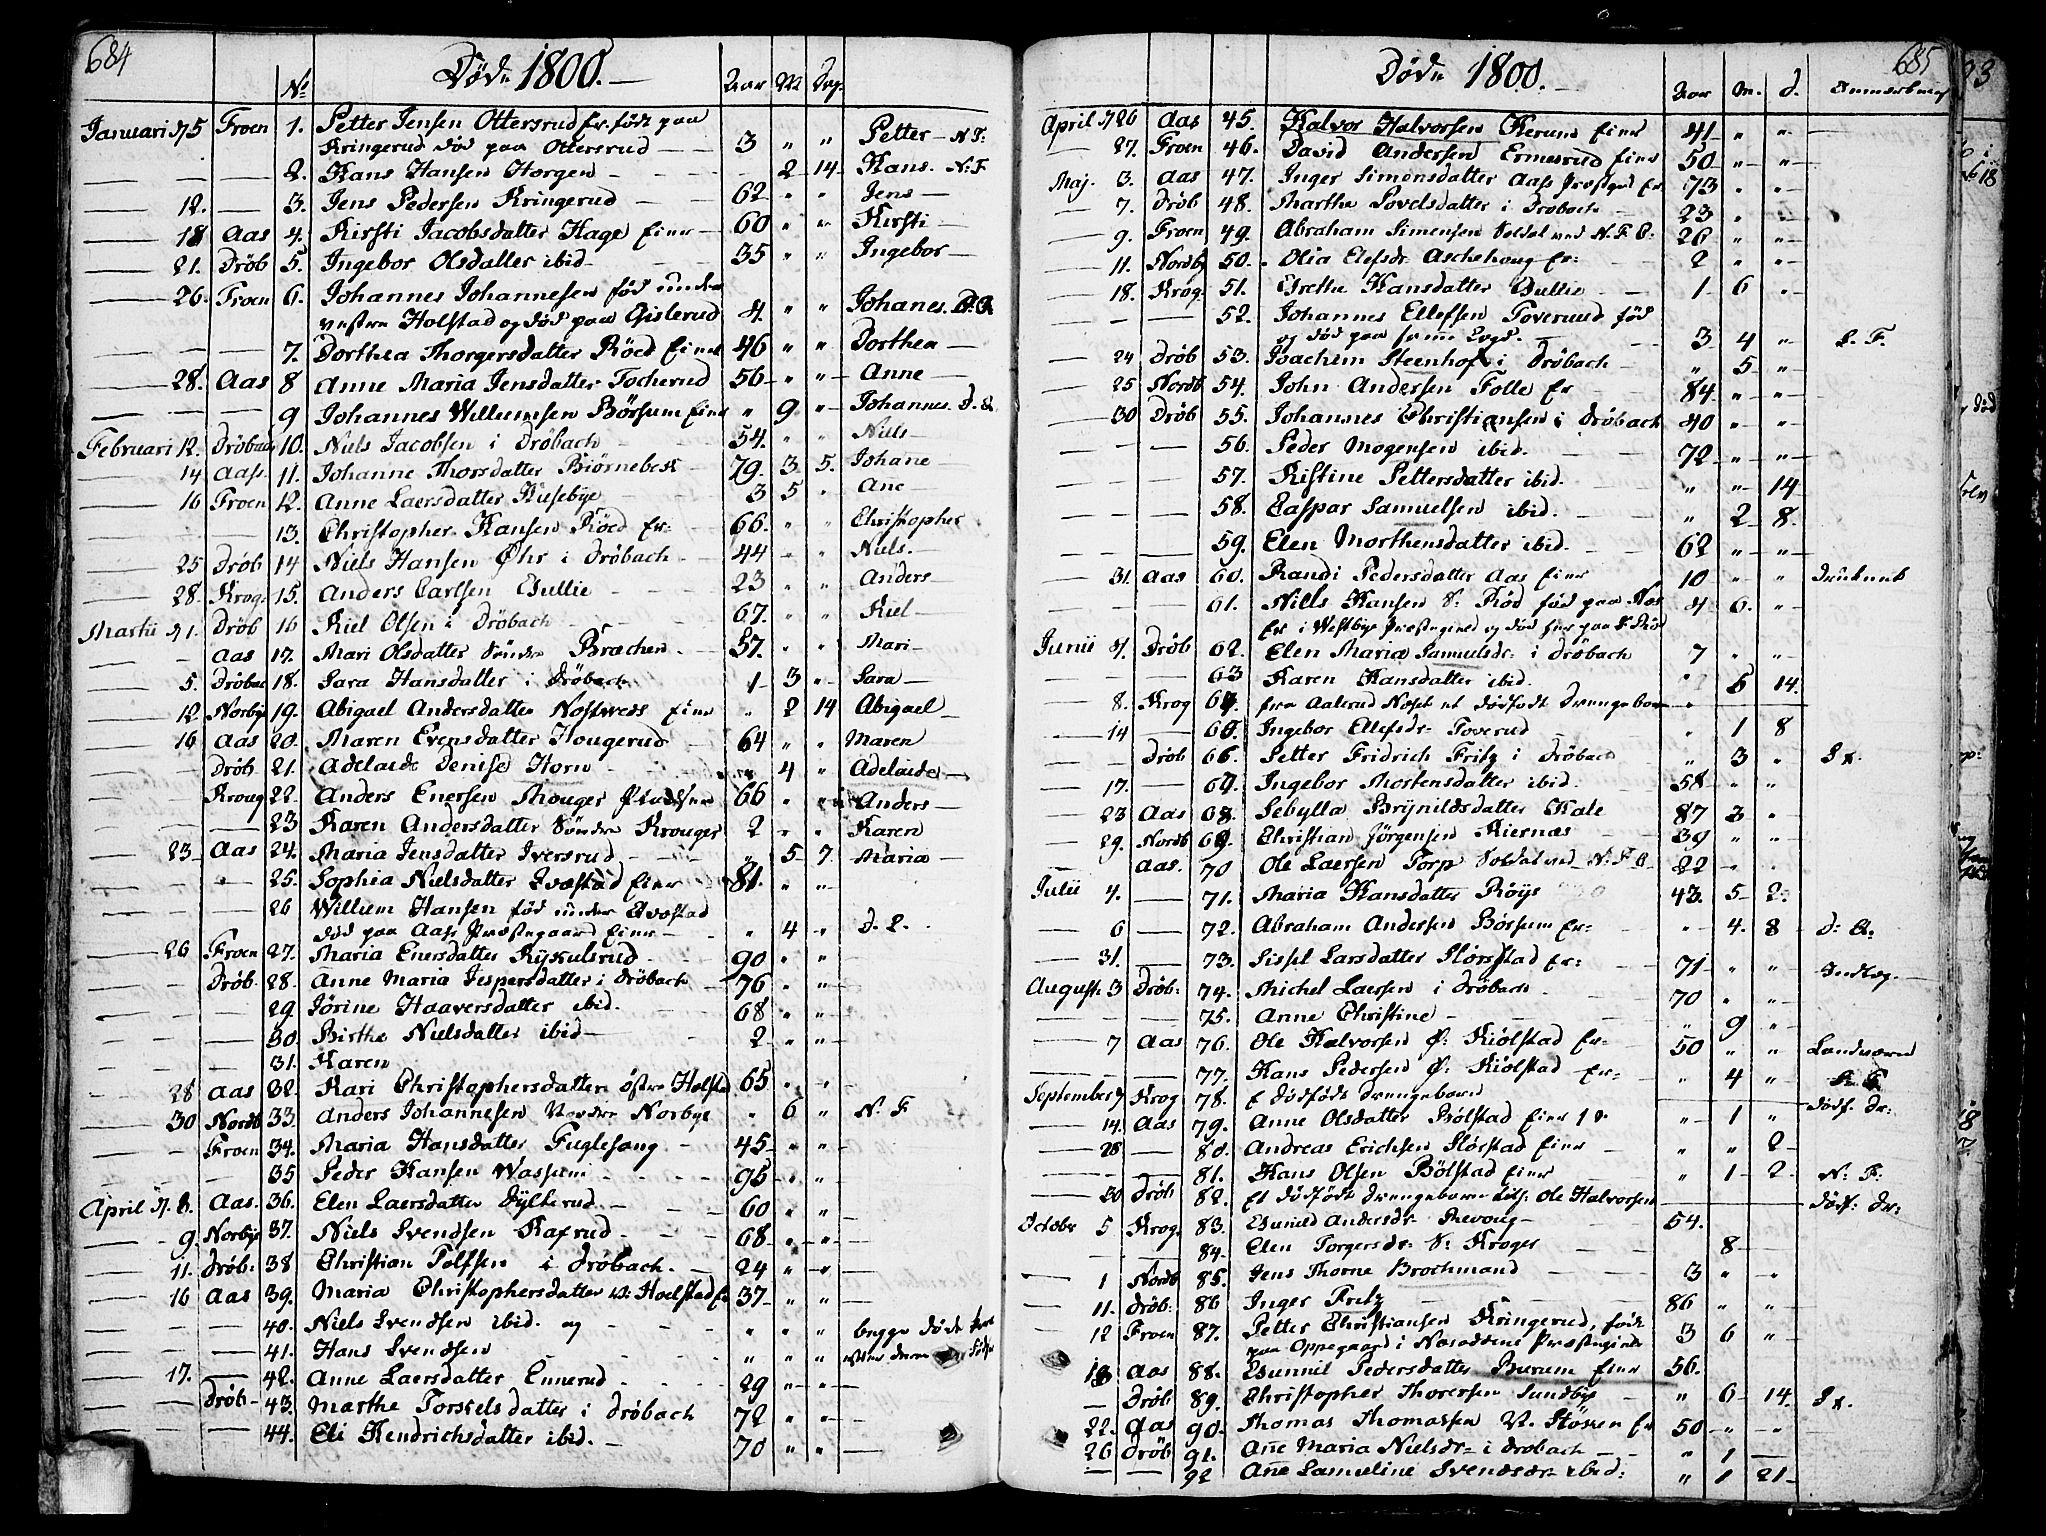 684
Døde 1800.
No Aar M Dag.
Januari d 5 Froen 1. Petter Jensen Ottersrud Er. født paa
Kringerud død paa Ottersrud 3 " " Petter N: F:
2. Hans Hansen Horgen 2 14 Hans. N: F
12. 3. Jens Pedersen Kringerud 62 " " Jens
18 Aas 4. Kirsti Jacobsdatter Hage Eier 60 " " Kirsti
21. Drøb 5. Ingebor Olsdatter ibid 35 " " Ingebor
26. Froen 6. Johannes Johannesen fød under
vestre Holstad og død paa Gislerud 4. " " Johanes.
7. Dorthea Thorgersdatter Röed Eier 46 " " Dorthea
28. Aas 8 Anne Maria Jensdatter Tocherud 56 " " Anne
9 Johannes Willumsen Börsum Eier " 9 " Johannes.
Februari 12. Dröbach 10. Niels Jacobsen i Dröbach 54. " " Niels
14 Aass 11. Johanne Thorsdatter Biörnebek 79. 3 5. Johane
16 Froen 12. Anne Laersdatter Husebye 3 5 " Ane
13. Christopher Hansen Röed Er: 66. " " Christopher
25 Dröb 14 Niels Hansen Øhr i Dröbach 44 " " Niels.
28. Krog: 15. Anders Carlsen Gullie 23 " " Anders
Martii d 1. Dröb 16 Kiel Olsen i Dröbach 67. " " Kiel
Aas 17. Mari Olsdatter Söndre Brachen 37. " " Mari
5. Dröbac 18. Sara Hansdatter i Dröbach 1 3 " Sara
12 Norbye 19. Abigael Andersdatter Nostweds Eier " 2 14 Abigael
16 Aas 20. Maren Evensdatter Hougerud 64 " " Maren
Dröb 21. Adelaide Denise Horn 4 " Adelaide
Kroug 22. Anders Enersen Mouger 66 " " Anders
23 Karen Andersdatter Söndre Krouger 2 " " Karen
23 Aas 24. Maria Jensdatter Iversrud " 5 7 Maria
25. Sophia Nielsdatter Qvæstad Eier 81. " "
26 Willum Hansen fød under Qvæstad
død paa Aass Præstegaard Eier " 4 "
26 Froen 27. Maria Enersdatter Ryskulsrud 90 " "
Dröb 28. Anne Maria Jespersdatter i Dröbach 76 " "
29 Jörine Haaversdatter ibid. 68 " "
30. Birthe Nielsdatter ibid 2 " "
31. Karen
28 Aas 32. Kari Christophersdatter östre Holstad 65 " "
30 Nordb 33. Anders Johannesen Nordre Norbye " 6 " N: F
Froen 34. Maria Hansdatter Fuglesang 45 " "
35 Peder Hansen Wassum 95 " "
April d. 8. Aas. 36. Elen Laersdatter Dylterud 60 " "
9 Norbye 37. Niels Svendsen Kafrud 68 " "
11. Dröb: 38 Christian Tolfsen i Dröbach. 24 " "
16 Aas 39. Maria Christophersdatter V: Hoelstad Er 37 " "
40. Niels Svendsen ibid. og " " " begge døde
41. Hans Svendsen " " "
17. 42. Anne Laersdatter Ennerud 29 " "
Dröb 43. Marthe Torkelsdatter i Dröbach 72 " "
44. Eli Hendrichsdatter ibid. 70 " "
685
Døde 1800.
Aar M. d. Anmærkning
April d 26 Aas 45. Halvor Halvorsen Kerum Eier 41 " "
27. Froen 46. David Andersen Ermesrud Eier 50 " "
Maj. 3. Aas 47. Inger Simensdatter Aass Præstgrd Er 73 " "
7. Dröb 48. Marthe Povelsdatter i Dröbach 23 " "
9. Froen 49. Abraham Simensen Soldat ved N. F. 26 " "
11. Nordb 50. Olia Elefsdr Aschehoug Er: 2 " "
18. Krog. 51. Grethe Hansdatter Gullie 1 6 "
52. Johannes Ellefsen Toverud fød
og død paa samme 3 4 " S. F.
24 Dröb 53. Joachim Steenhof i Dröbach " 5 "
25 Nordb 54. John Andersen Folle Er 84 " "
30 Dröb 55. Johannes Christiansen i Dröbach 40 " "
56. Peder Mogensen ibid. 72 " "
57. Kistine Pettersdatter ibid. " " 14
58. Caspar Samuelsen ibid. " 2 8.
59. Elen Morthensdatter ibid. 62 " "
31. Aas 60. Randi Pedersdatter Aas Eier 10 " " Druknet
61. Niels Hansen S: Röd fød paa
Er i Westbye Præstegield og død her paa S. Röd 4 6. "
Junii d 1. Dröb 62. Elen Maria Samuelsdr: i Dröbach 7 " "
63 Karen Hansdatter ibid. " 5 14.
8. Krog 64. fra Aalerud Næset et dödfödt Drengebarn
14 65. Ingebor Elefsdr: Toverud " 1 8
Dröb 66. Petter Fridrich Fritz i Dröbach " 3 "
17. 67. Ingebor Mortensdatter ibid. 58 " "
23 Aas 68. Sebylla Brynildsdatter Hale 87 3 "
29. Nordb 69. Christian Jörgensen Kiernæs 39 " "
Aas. 70 Ole Laersen Torp Soldat ved N: F. 22 " "
Julii 4. 71. Maria Hansdatter Röys 43. 5 2.
6 72. Abraham Andersen Börsum Er: " 4. 8
31. 73. Sissel Larsdatter Slorstad Er: 71 " "
August: 3 Dröb: 74. Michel Laersen i Dröbach 70 " "
75. Anne Christine " 9 "
7 Aas 76. Ole Halvorsen Ø: Kiölstad Er: 50 " " Landværn
77. Hans Pedersen Ø: Kiölstad Er: " 4 "
September 7 Krog 78. Et dödfödt Drengebarn Dödf: Dr:
14. Aas 79. Anne Olsdatter Bölstad Eier " 1 "
28 80. Andreas Erichsen Slorstad Eier " " 2
81. Hans Olsen Bölstad Eier " 1 2 N: F:
30 Dröb 82. Et dödfödt Drengebarn Ole Halvorsen Dödf: Dr:
October 5 Krog 83. Gunild Andersdr: Revoug 54.
84. Elen Torgersdr: S: Kroger 8
1 Nordb 85. Jens Thorne Brochmand 3 " "
11. Dröb: 86 Inger Fritz 86 " "
12 Froen 87. Petter Christiansen Kringerud, født
paa Oppegaard i Næsoddens Præstegield 3 6 "
18 Aas 88. Gunnil Pedersdatter Burum Eier 56.
Dröb 89. Christopher Thoresen Sundbye " 6 14.
22. Aas 90. Thomas Thomassen V. Stökken Er 50 " "
26 Dröb 91. Añe Maria Nielsdr: i Dröbach " 1
92 Añe Lameline Svendsdr: ibid: " 1 21